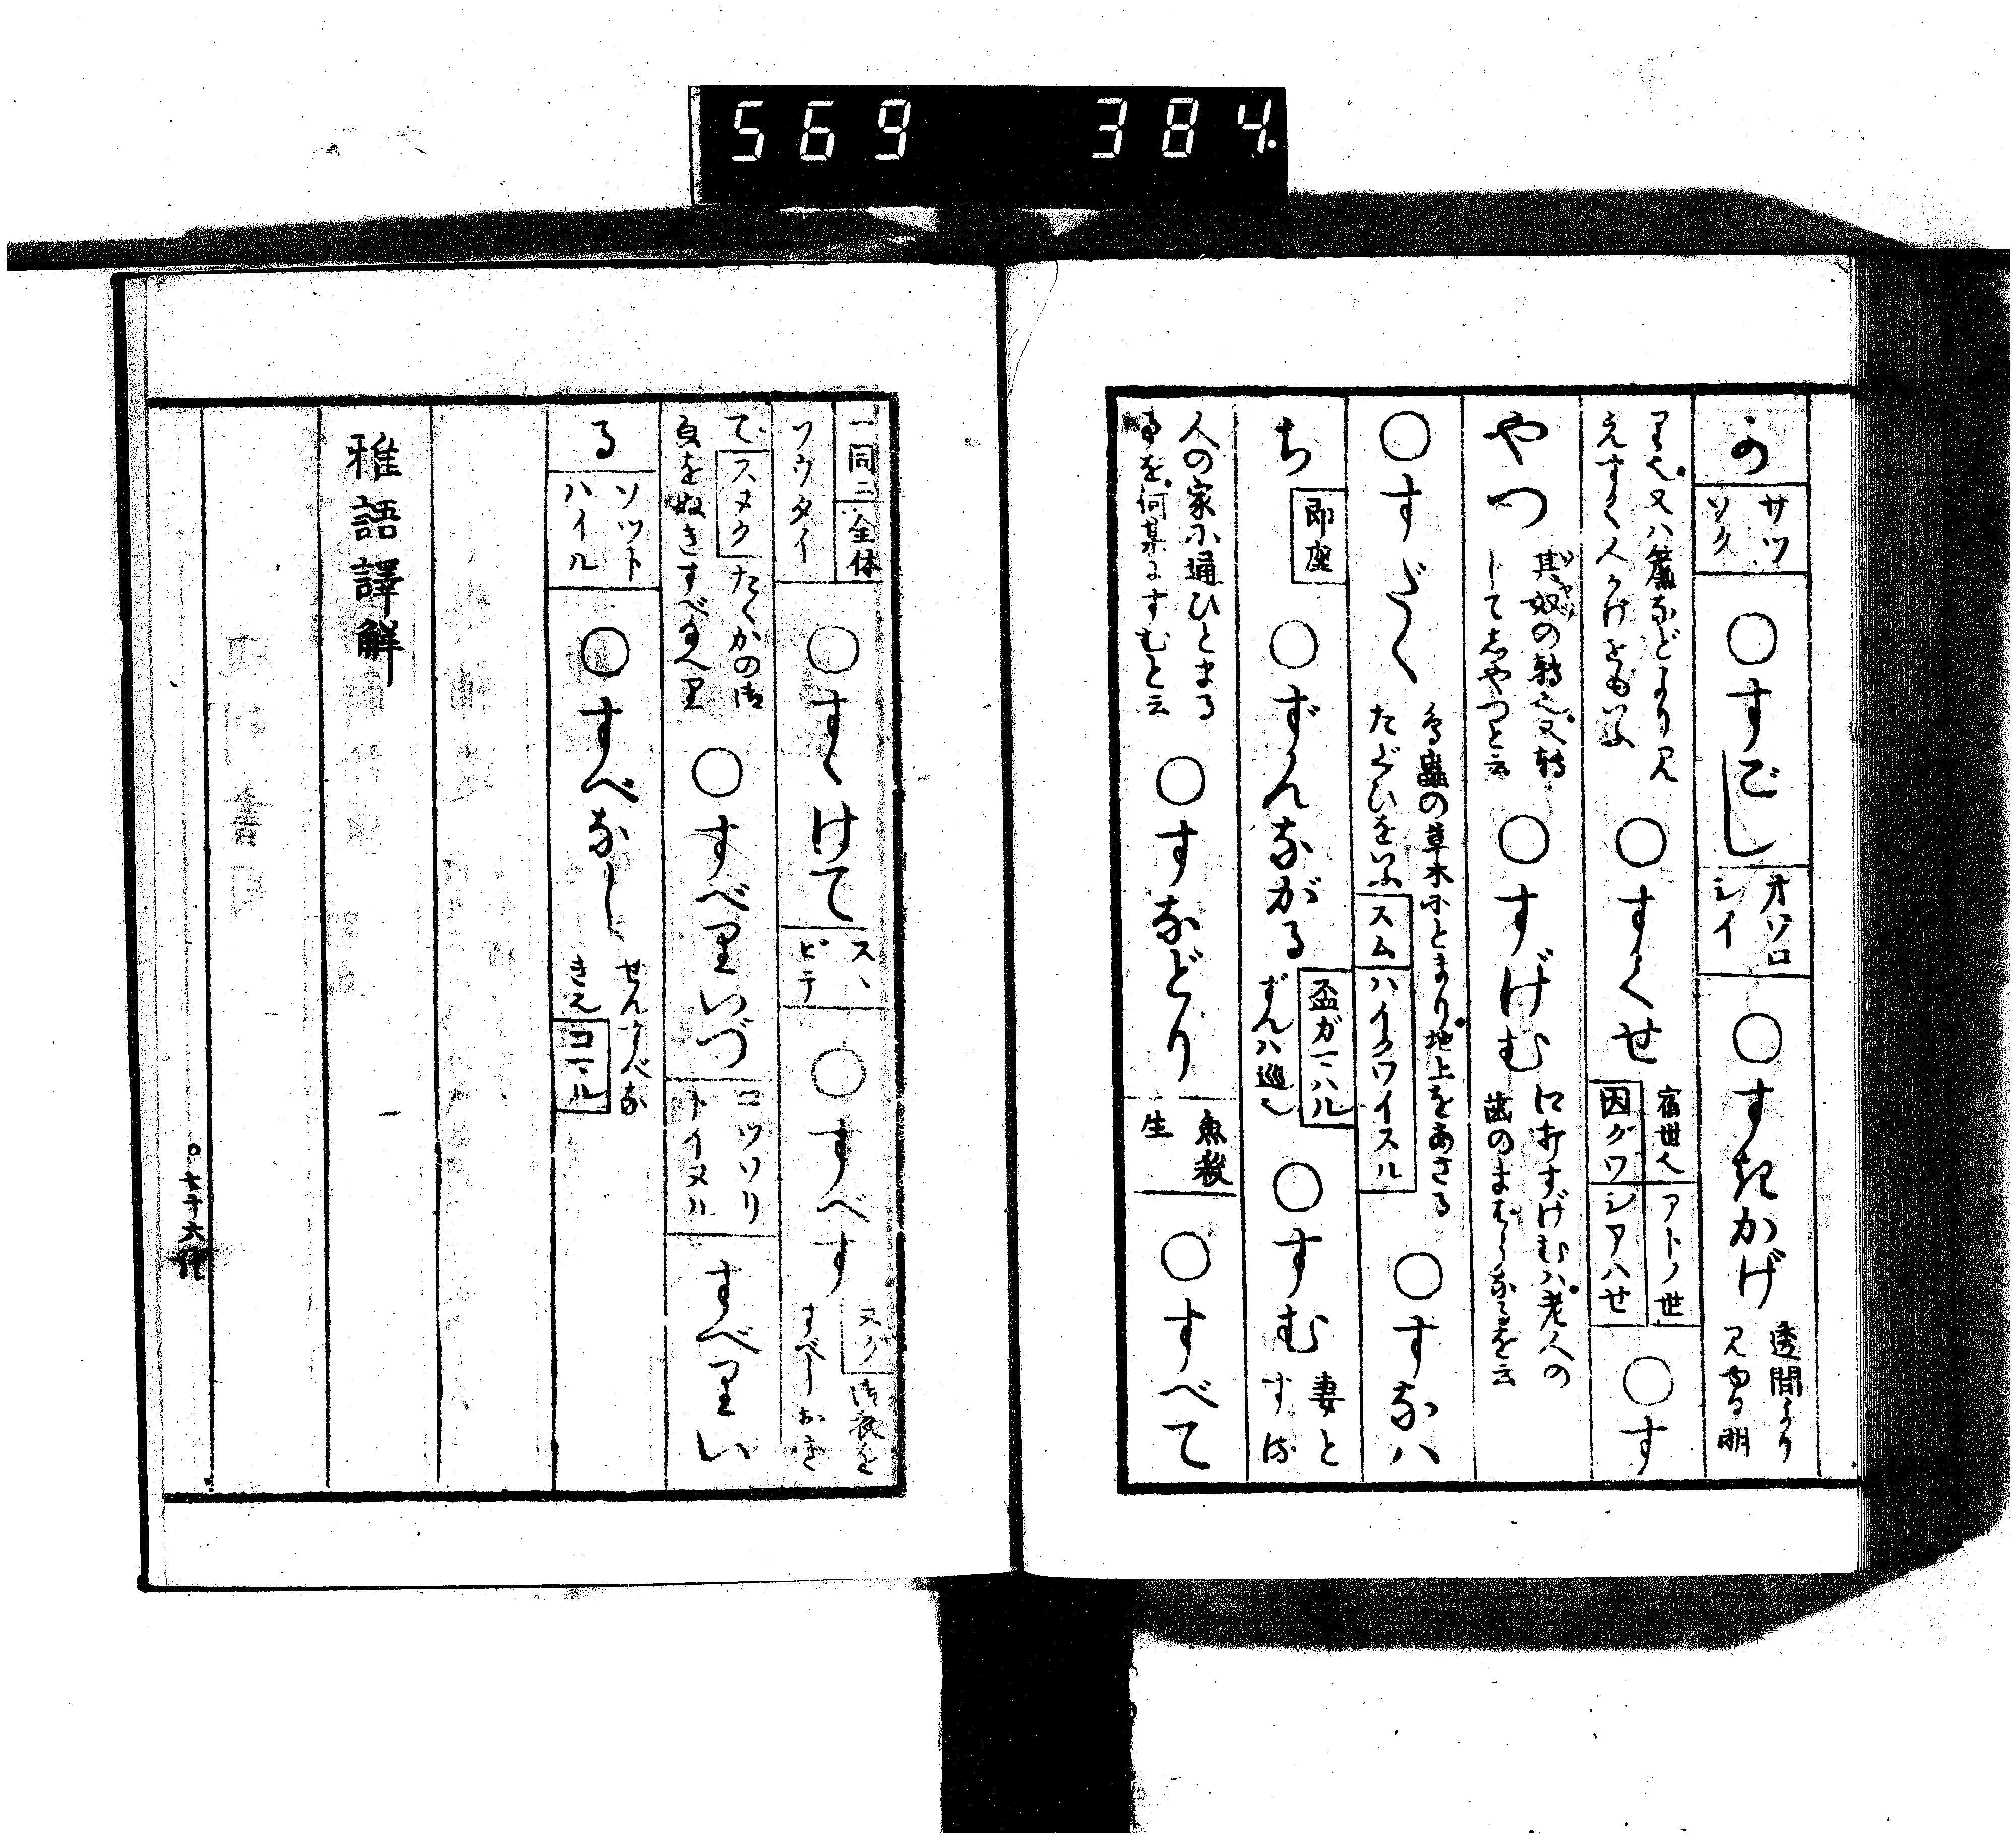 569 384.
の サツソク ○すごし オソロシイ ○すきかげ 透間より見ゆる明
りを又ハ簾などより見えすく人かげをもいふ ○すくせ 宿世也 アトノ世 因グワ シアハせ ○す
やつ 其奴の轉也又轉してしやつと云 ○すげむ 口打すげむハ老人の歯のまばらなるを云
○すだく 鳥蟲の草木にとまり地上をあさるたぐひをいふ スム ハイクワイスル ○すなハ
ち 即座 ○ずんながる 盃ガマハル ずんハ巡也 ○すむ 妻とすは
人の家に通ひとまるを何某にすむと云 ○すなどり 魚殺生 ○すべて
一同ニ 全体 ソウタイ ○すゝけて スヽビテ ○すべす ヌグ 御衣をすべしおき
て スヌク たくかの御貝をぬきすべらへり ○すべりいづ コツソリトイヌル すべりい
る ソツトハイル ○すべなし せんすべなきえ コマル
雅語譯解
七十六